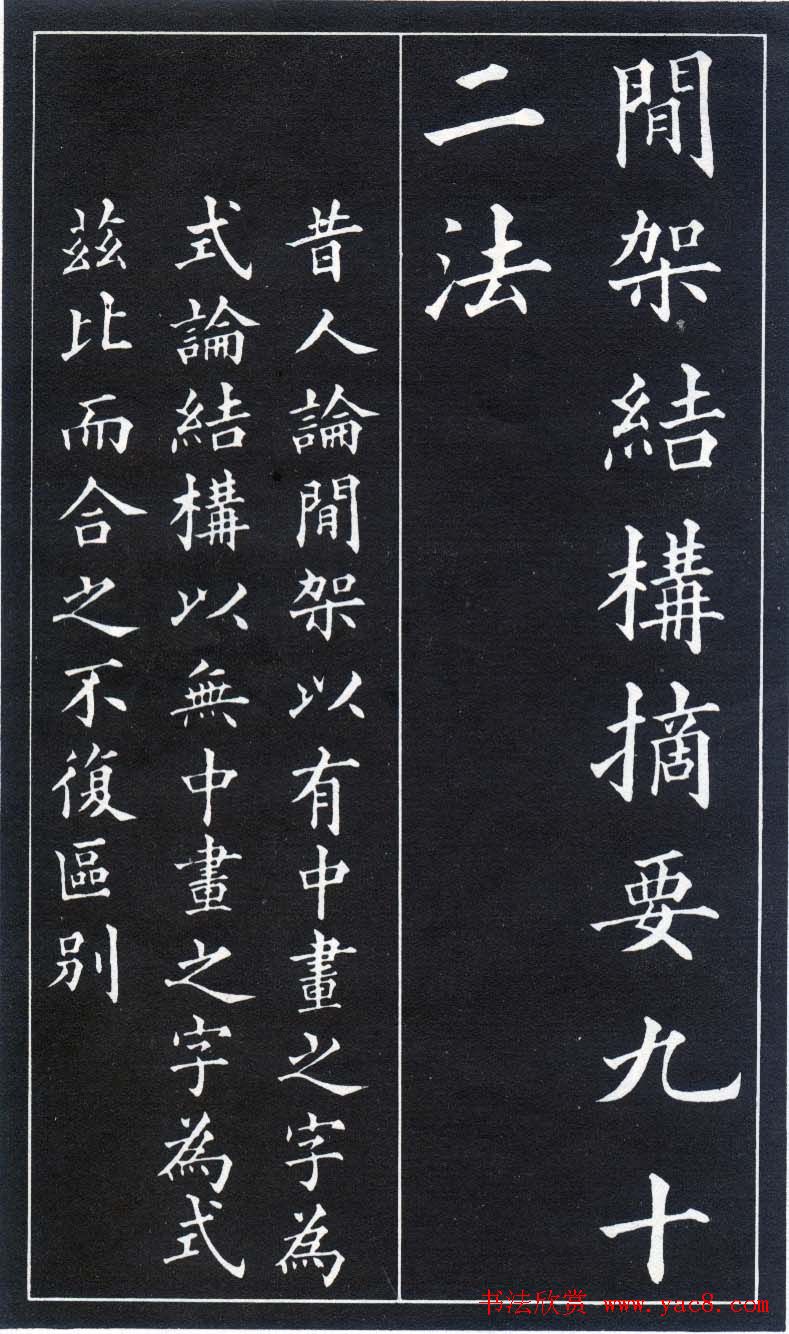 閒架結構摘要九十
二法
昔人論閒架以有中畫之字為
式論結構以無中畫之字為式
茲比而合之不復區别
书法欣赏 www.yac8.com